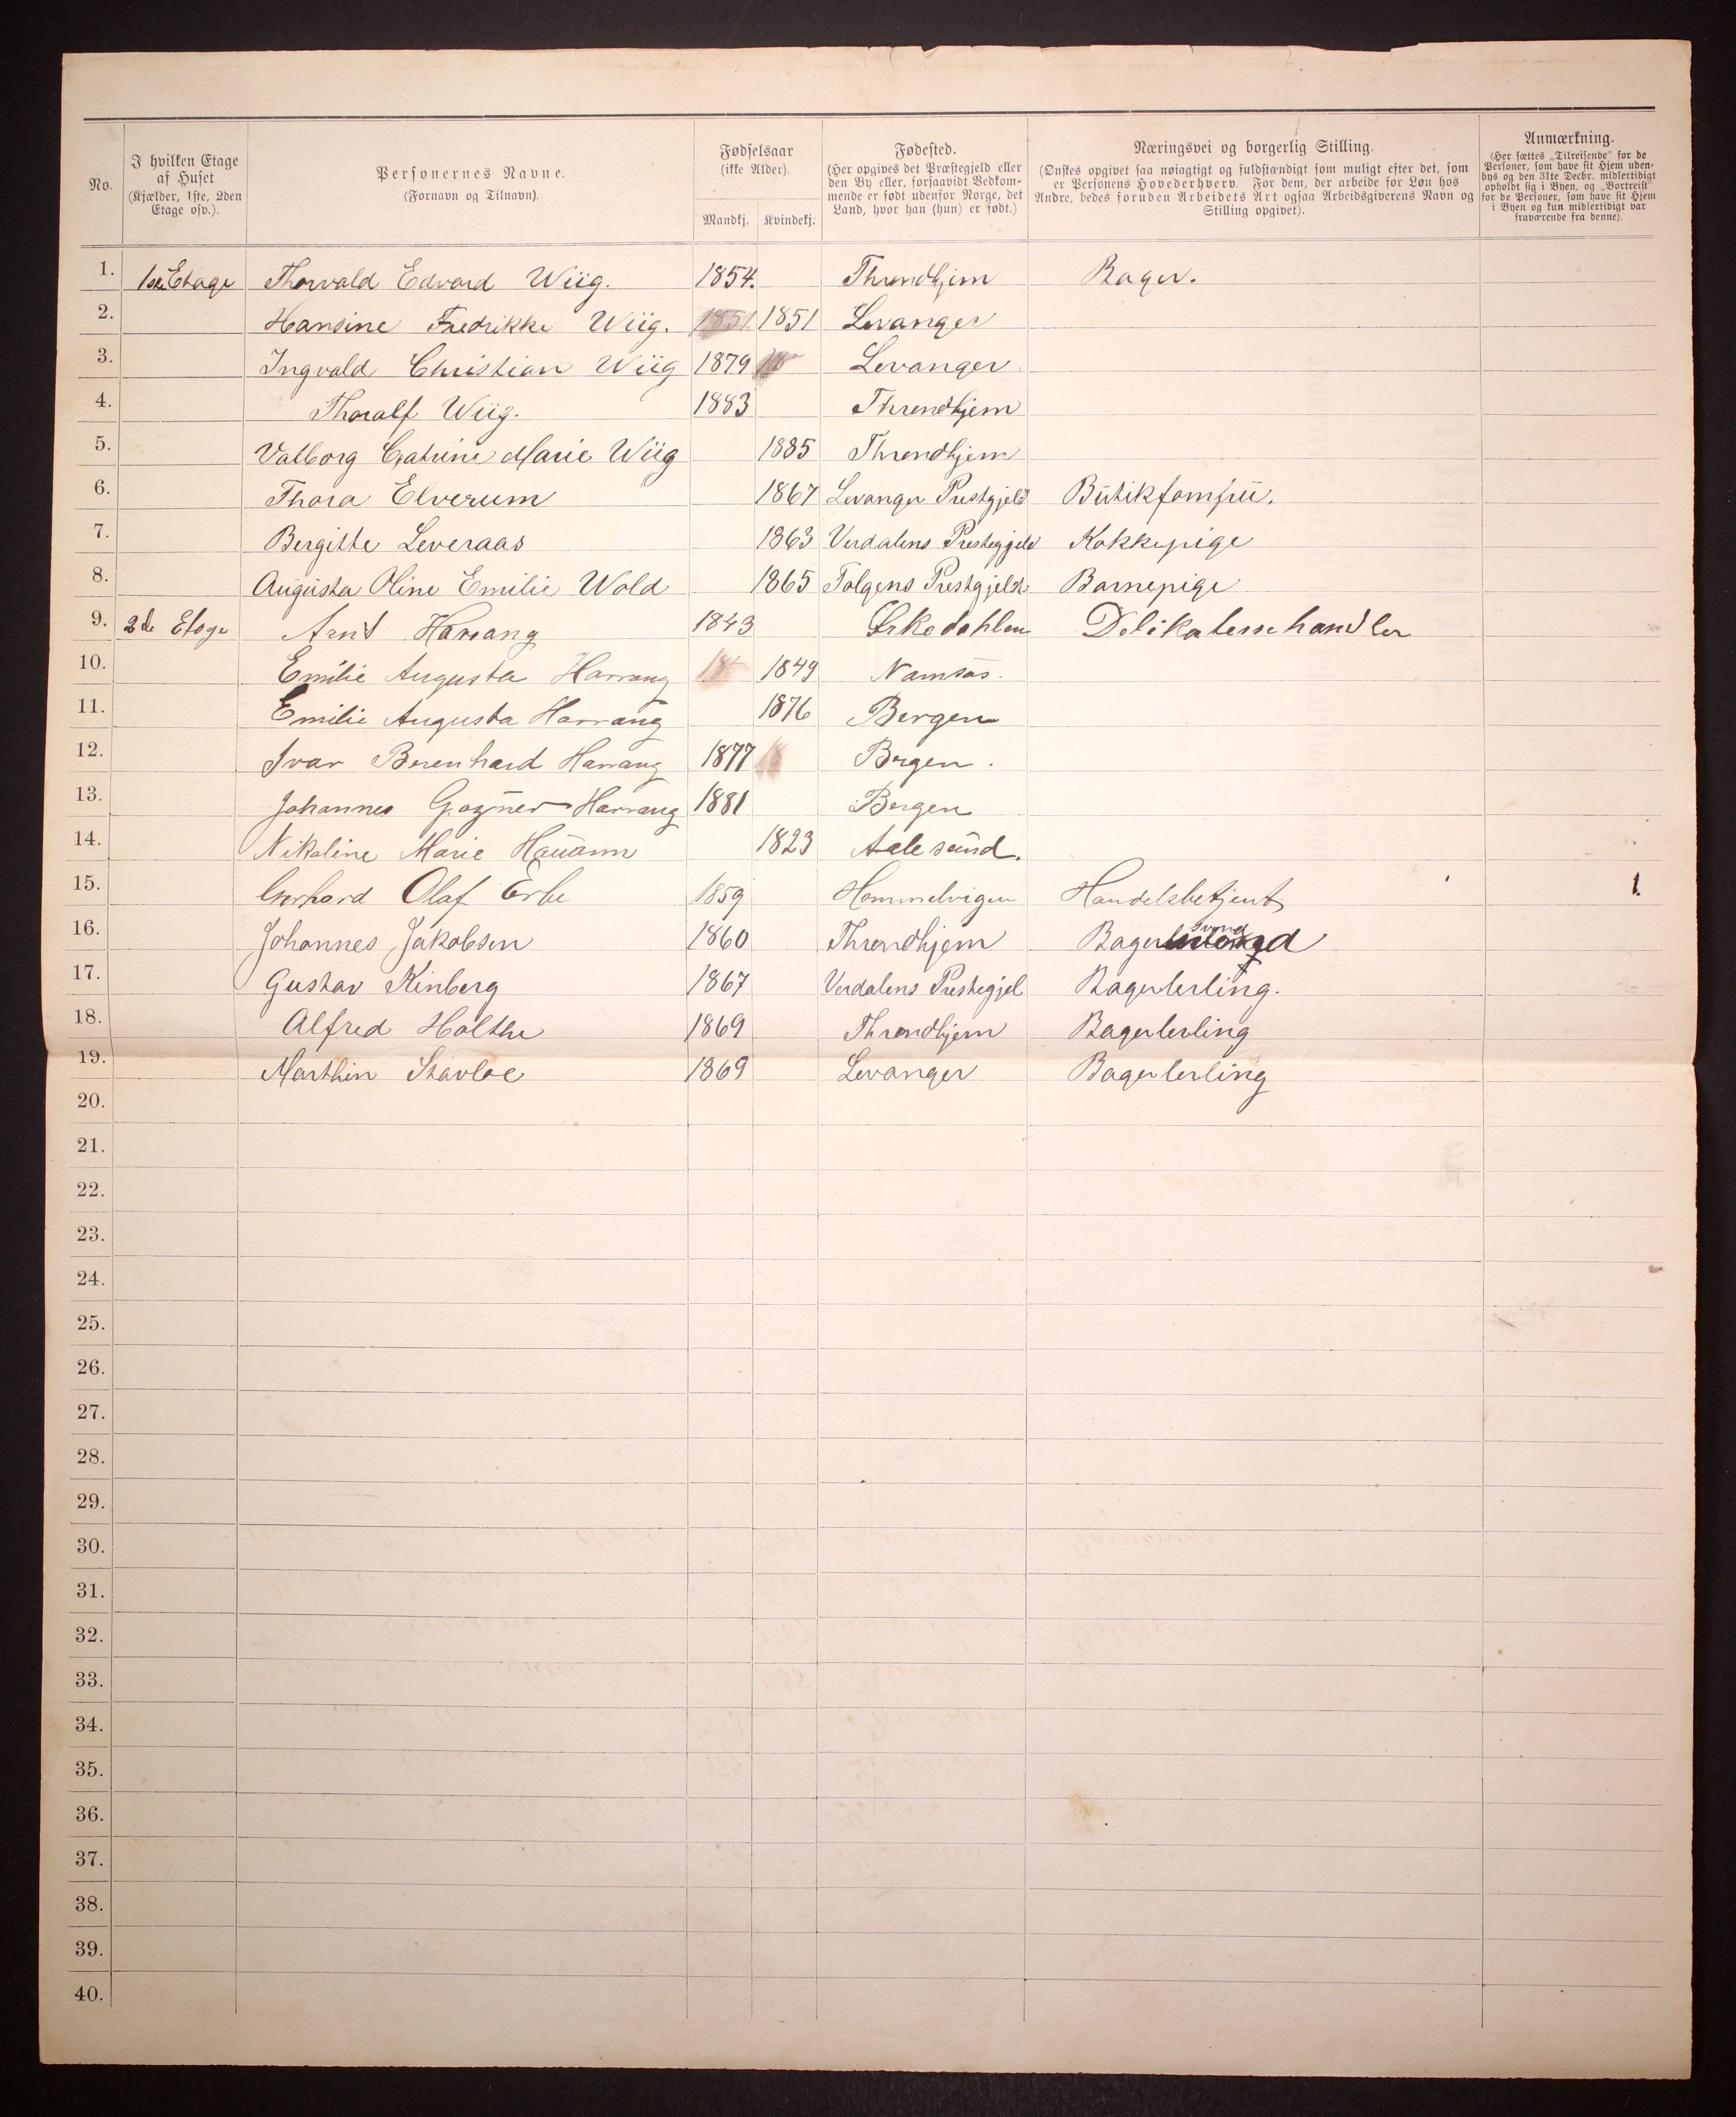 No.
I hvilken Etage
af Huset
(Kjælder, 1ste, 2den
Etage osv.).
Personernes Navne.
(Fornavn og Tilnavn).
Fødselsaar
(ikke Alder).
Mandkj. Kvindekj.
Fødested.
(Her opgives det Præstegjeld eller
den By eller, forsaavidt Vedkom-
mende er født udenfor Norge, det
Land, hvor han (hun) er født.)
Næringsvei og borgerlig Stilling.
(Ønskes opgivet saa nøiagtigt og fuldstændigt som muligt efter det, som
er Personens Hovederhverv. For dem, der arbeide for Løn hos
Andre, bedes foruden Arbeidets Art ogsaa Arbeidsgiverens Navn og
Stilling opgivet).
Anmærkning.
(Her sættes „Tilreisende" for de
Personer, som have sit Hjem uden-
bys og den 31te Decbr. midlertidigt
opholdt sig i Byen, og „Bortreist"
for de Personer, som have sit Hjem
i Byen og kun midlertidigt var
fraværende fra denne).
1. 1ste Etage Thorvald Edvard Wiig. 1854. Throndhjem Bager.
2. Hansine Fredrikke Wiig. 1851 1851 Levanger
3. Ingvald Christian Wiig 1879 18 Levanger
4. Thoralf Wiig. 1883 Throndhjem
5. Valborg Catrine Marie Wiig 1885 Throndhjem
6. Thora Elverum 1867 Levanger Prestgjeld Butikjomfru.
7. Bergitte Leveraas 1863 Verdalens Prestegjeld Kokkepige
8. Augusta Oline Emilie Wold 1865 Tolgens Prestgjeld Barnepige
9. 2de Etage Arnt Harrang 1843 Orkedahlen Delikatessehandler
10. Emilie Augusta Harrang 18 1849 Namsos.
11. Emilie Augusta Harrang 1876 Bergen
12. Ivar Berenhard Harrang 1877 18 Bergen.
13. Johannes Harrang 1881 Bergen
14. Nikoline Marie 1823 Aalesund.
15. Gerhard Olaf Erbe 1859 Hommelvigen Handelsbetjent 1.
16. Johannes Jakobsen 1860 Throndhjem Bager svend
17. Gustav Kinberg 1867 Verdalens Prestegjel Bagerlerling.
18. Alfred Holthe 1869 Throndhjem Bagerlerling
19. Marthin Stavloe 1869 Levanger Bagerlerling
20.
21.
22.
23.
24.
25.
26.
27.
28.
29.
30.
31.
32.
33.
34.
35.
36.
37.
38.
39.
40.